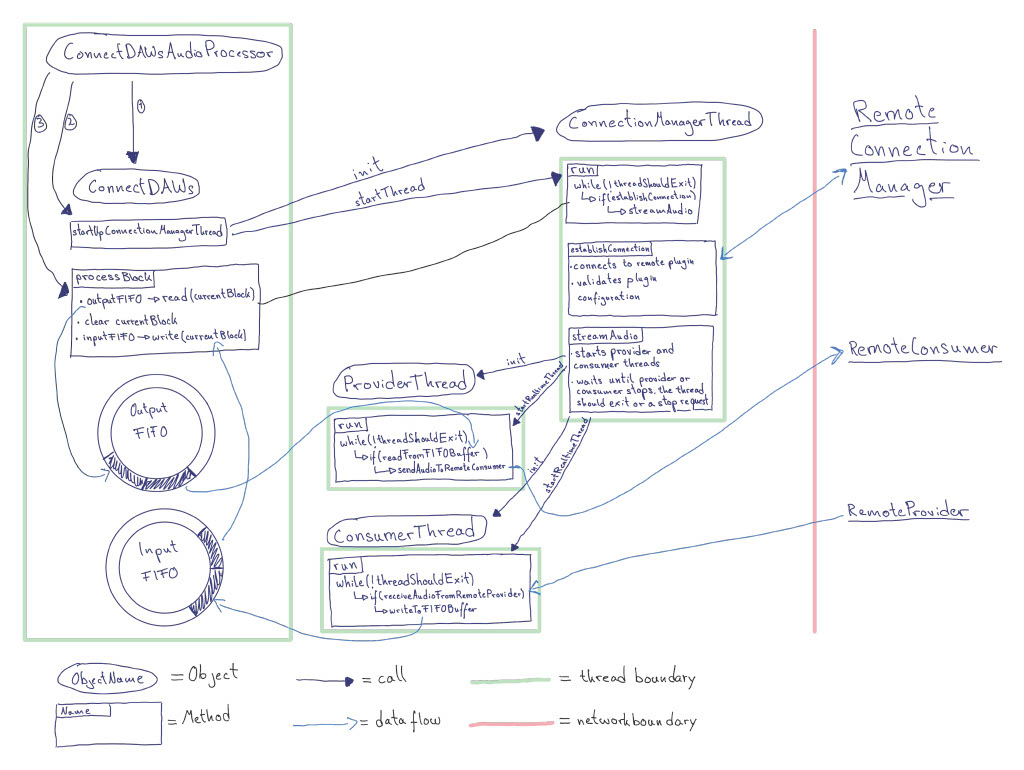 ConnectDAWsAudioProcessor
1
2
3
ConnectDAWs
startUpConnectionManagerThread
processBlock
• outputFIFO → read(currentBlock)
• clear currentBlock
• inputFIFO → write(currentBlock)
Output
FIFO
Input
FIFO
init
startThread
ConnectionManagerThread
run
while(!threadShouldExit)
if(establishConnection)
streamAudio
establishConnection
• connects to remote plugin
• validates plugin
configuration
streamAudio
• starts provider and
consumer threads
• waits until provider or
consumer stops, the thread
should exit or a stop request
init
startRealtimeThread
ProviderThread
run
while(!threadShouldExit)
if(readFromFIFOBuffer)
sendAudioToRemoteConsumer
init
startRealtimeThread
ConsumerThread
run
while(!threadShouldExit)
if(receiveAudioFromRemoteProvider)
writeToFIFOBuffer
Remote
Connection
Manager
RemoteConsumer
RemoteProvider
ObjectName = Object
= call
= thread boundary
Name
= Method
= data flow
= networkboundary